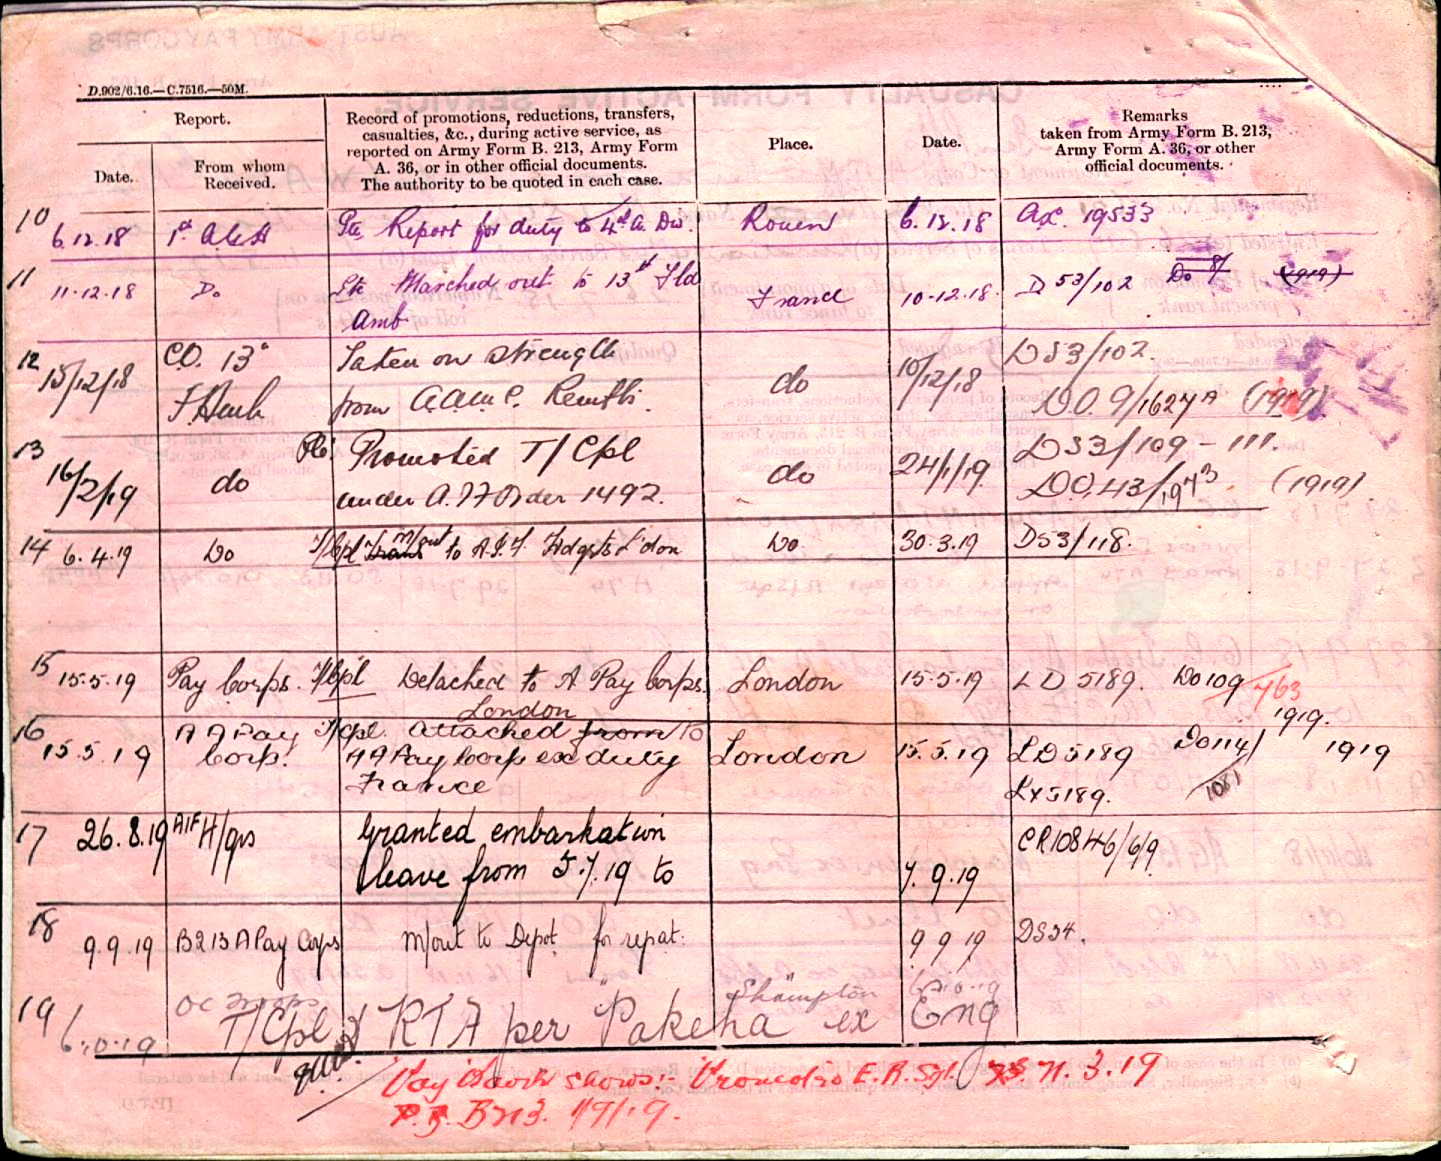 D.902/6.16.—C.7516.—50M.
Report.
Date.
From whom
Received.
Record of promotions, reductions, transfers,
casualties, &c., during active service, as
reported on Army Form B. 213, Army Form
A. 36, or in other official documents.
The authority to be quoted in each case.
Place.
Date.
Remarks
taken from Army Form B. 213,
Army Form A. 36, or other
official documents.
10 6.12.18 Report for duty to 4th A. Div. Rouen 6.12.18 19533
11 11-12-18 Do Marched out to 13th Fld France 10-12-18 D 53/102 Do (1919)
Amb
12 15/12/18 C.O. 13" Taken on strength do 10/12/18 D53/102.
from A.A.M.C. D.O. 9/1627A (1919)
13 16/2/19 do Promoted T/Cpl do 24/1/19 D53/109 - 111.
under A.I.F Order 1492. D.O.43/1973 (1919)
14 6.4.19 Do T/Cpl Trans m/out to A.I.F. Hdqrs L'don Do 30.3.19 D53/118.
15 15.5.19 Pay Corps. T/Cpl Detached to A Pay Corps. London 15.5.19 LD 5189. Do109 763
London 1919.
16 15.5.19 A A Pay T/Cpl. attached from to London 15.5.19 LD5189 Do114/ 1919
Corp. AA Pay Corps ex duty 1081
France 5189.
17 26.8.19 AIF H/qrs Granted embarkation CR10846/6/9
leave from 5.7.19 to 7.9.19
18 9.9.19 B213 A Pay Corps M/out to Depot for repat. 9 9 19 DS34.
OC Troops S'hampton 6-10-19
19 6.10.19 T/Cpl RTA per "Pakeha" ex Eng
Pay Book shows:- Promoted E.R. Sgt. 3.19